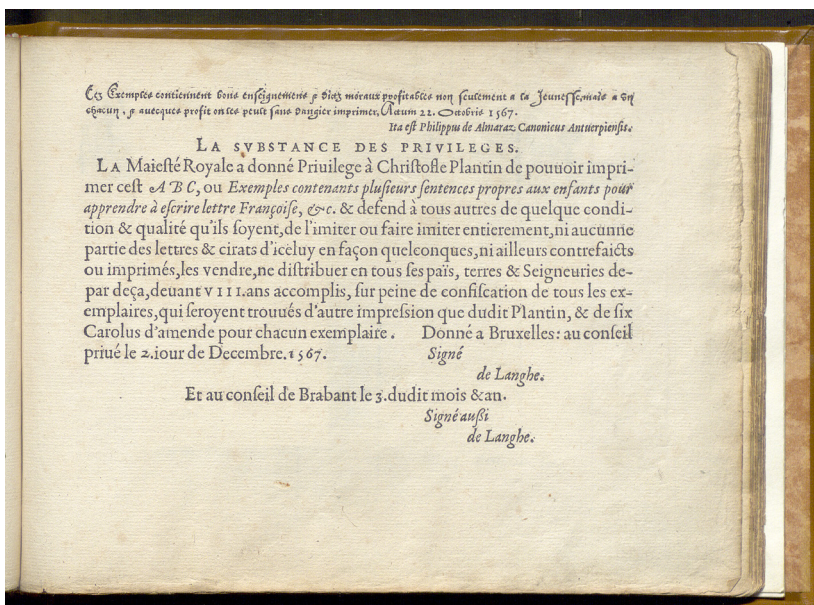 Ces Exemples contiennent bons enseignemens & dictz moraux profitables non seulement a la Jeunesse, mais a un
chacun, & avecques profit on les peult sans dangier imprimer. Actum 22. Octobris 1567.
Ita est Philippus de Almaraz Canonicus Antuerpiensis.
LA SVBSTANCE DES PRIVILEGES.
LA Maieſté Royale a donné Priuilege à Chriſtofle Plantin de pouuoir impri-
mer ceſt A B C, ou Exemples contenants pluſieurs ſentences propres aux enfants pour
apprendre à eſcrire lettre Françoiſe, &c. & defend à tous autres de quelque condi-
tion & qualité qu'ils ſoyent, de l'imiter ou faire imiter entierement, ni aucunne
partie des lettres & cirats d'iceluy en façon quelconques, ni ailleurs contrefaicts
ou imprimés, les vendre, ne diſtribuer en tous ſes païs, terres & Seigneuries de-
par deça, deuant VIII. ans accomplis, ſur peine de confiſcation de tous les ex-
emplaires, qui ſeroyent trouués d'autre impreſſion que dudit Plantin, & de ſix
Carolus d'amende pour chacun exemplaire. Donné a Bruxelles: au conſeil
priué le 2. iour de Decembre. 1567. Signé
de Langhe.
Et au conſeil de Brabant le 3. dudit mois & an.
Signé auſſi
de Langhe.